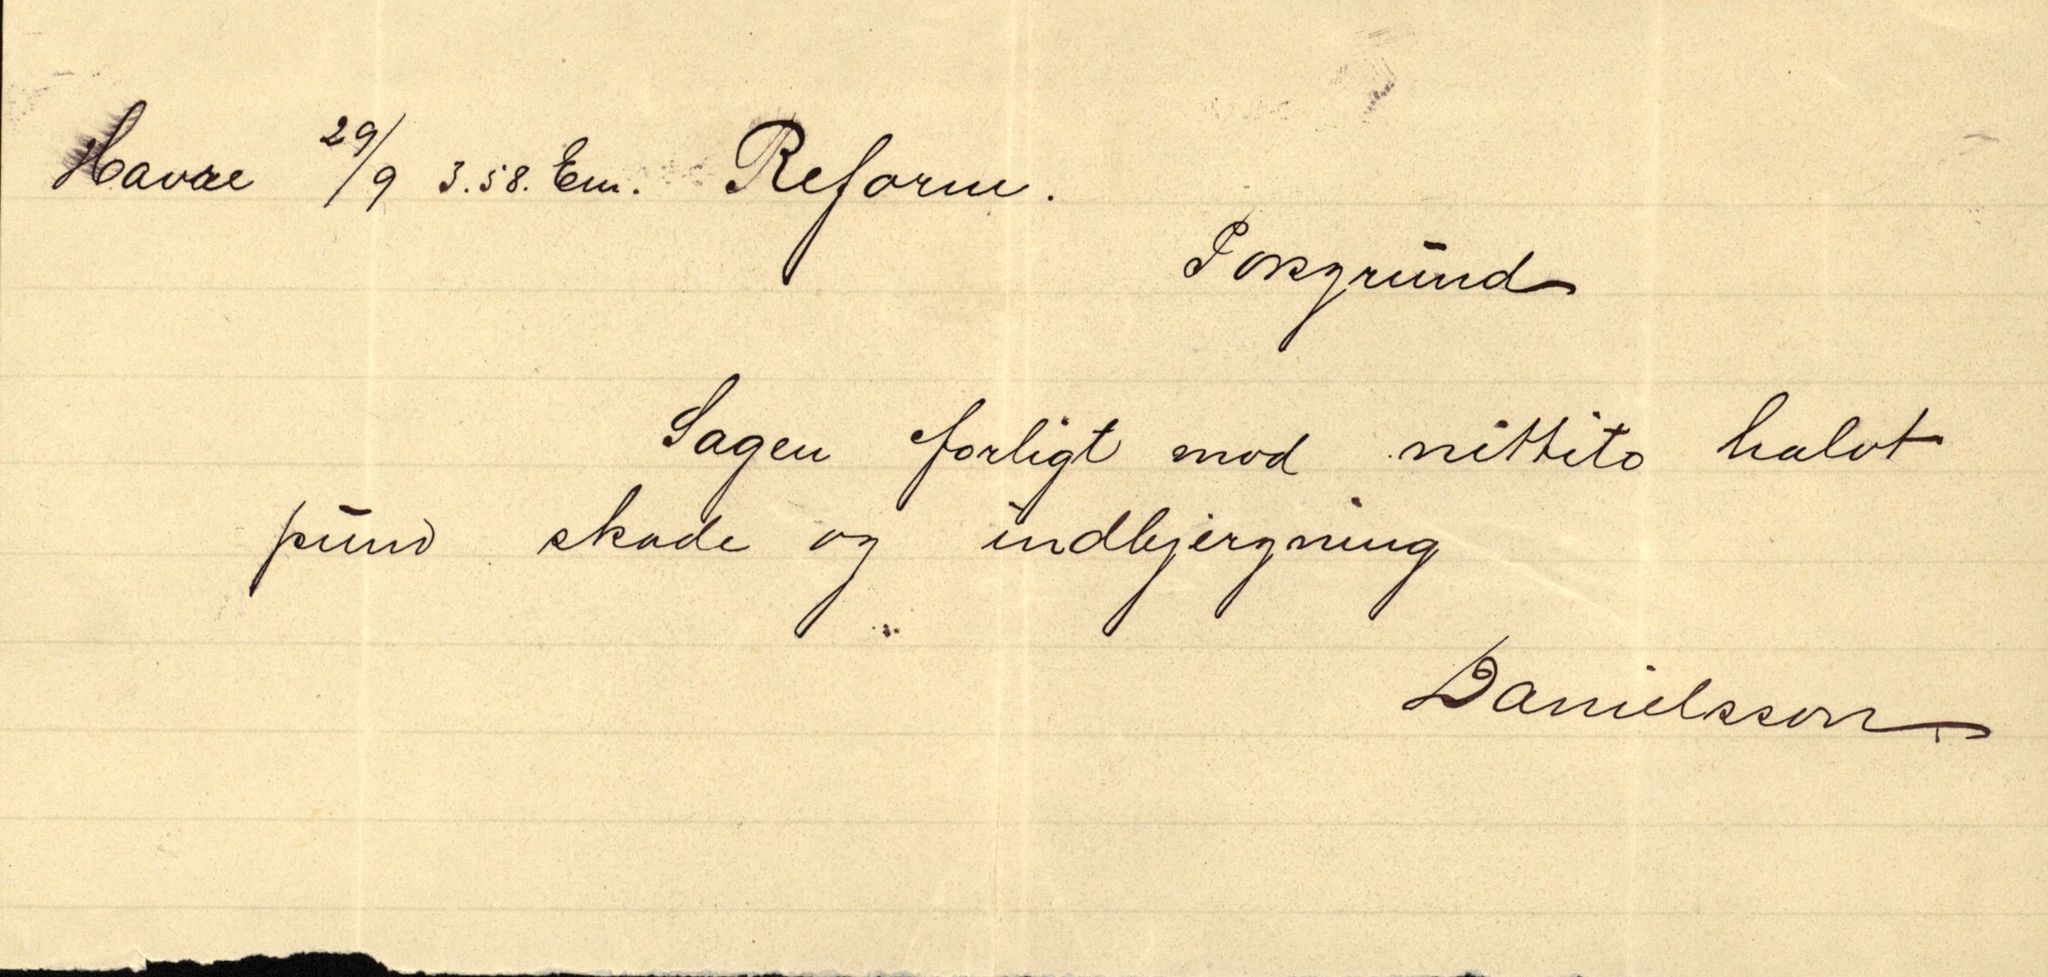 Havre 29/9 3.58. Em. Reform.
Porsgrund
Sagen forligt mod nittito halvt
pund skade og indbjergning
Danielsson